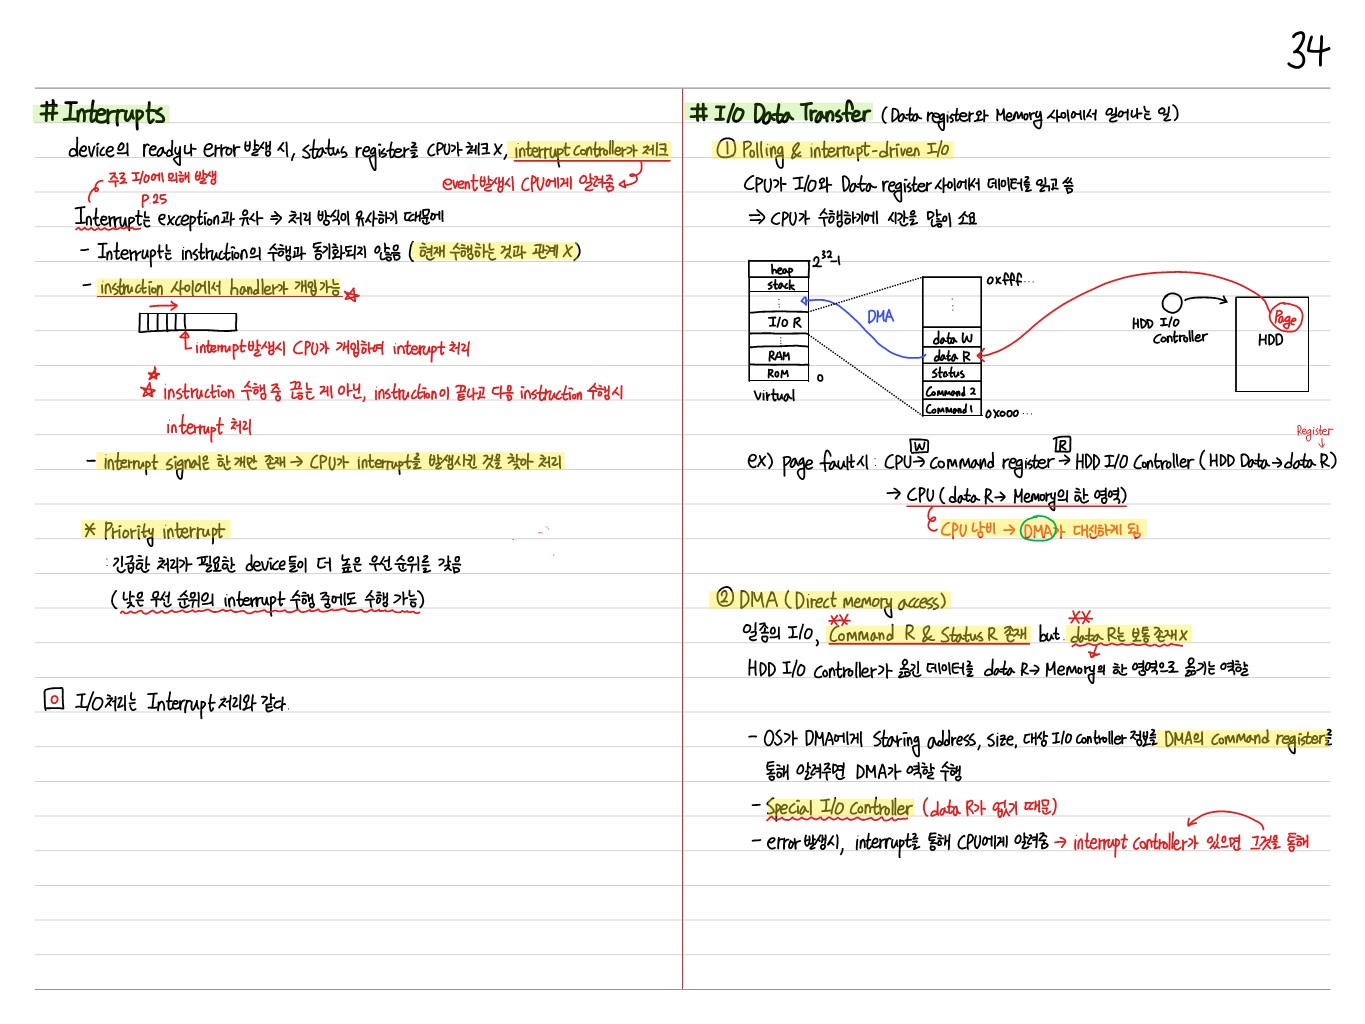 34
# Interrupts
device의 ready나 error 발생 시, Status register를 CPU가 체크 X, interrupt controller가 체크
주로 I/O에 의해 발생
event 발생시 CPU에게 알려줌
P.25
Interrupt는 exception과 유사 ⇒ 처리 방식이 유사하기 때문에
- Interrupt는 instruction의 수행과 동기화되지 않음 (현재 수행하는 것과 관계 X)
- instruction 사이에서 handler가 개입가능 ☆
interrupt 발생시 CPU가 개입하여 interupt 처리
☆ instruction 수행 중 끊는 게 아닌, instruction이 끝나고 다음 instruction 수행시
interrupt 처리
- interrupt signal은 한 개만 존재 → CPU가 interrupt를 발생시킨 것을 찾아 처리
* Priority interrupt
: 긴급한 처리가 필요한 device들이 더 높은 우선 순위를 갖음
(낮은 우선 순위의 interrupt 수행 중에도 수행 가능)
o I/O처리는 Interrupt 처리와 같다.
# I/O Data Transfer (Data register와 Memory 사이에서 일어나는 일)
① Polling & interrupt-driven I/O
CPU가 I/O와 Data register 사이에서 데이터를 읽고 씀
⇒ CPU가 수행하기에 시간을 많이 소요
heap
2^32-1
stack
⋮
I/O R
RAM
ROM
0
virtual
DMA
0xfff...
⋮
data W
data R
Status
Command 2
Command 1
0x000...
HDD I/O
Controller
Page
HDD
Register
W R
ex) page fault시 : CPU → Command register → HDD I/O Controller (HDD Data → data R)
→ CPU (data R → Memory의 한 영역)
CPU 낭비 → DMA가 대신하게 됨
② DMA (Direct memory access)
일종의 I/O, Command R & Status R 존재 but data R는 보통 존재 X
HDD I/O Controller가 옮긴 데이터를 data R → Memory의 한 영역으로 옮기는 역할
- OS가 DMA에게 Staring address, Size, 대상 I/O Controller 정보를 DMA의 Command register를
통해 알려주면 DMA가 역할 수행
- Special I/O Controller (data R가 없기 때문)
- error 발생시, interrupt를 통해 CPU에게 알려줌 → interrupt Controller가 있으면 그것을 통해